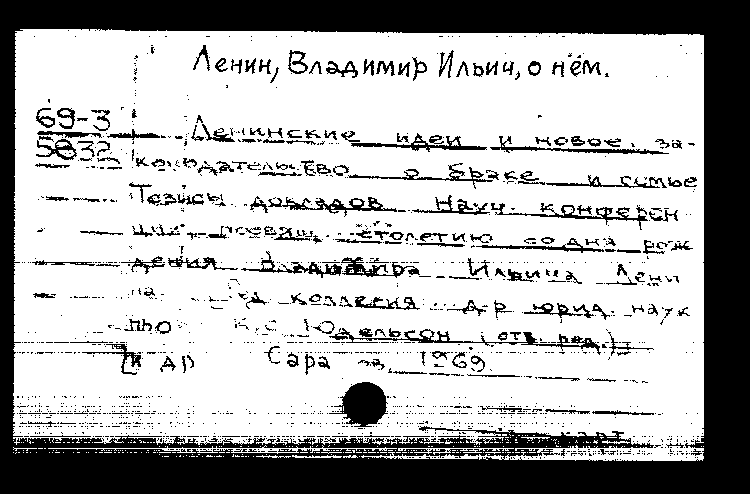 Ленин, Владимир Ильич, о нём.
69-3
5832
Ленинские идеи и новое за-
конодательство о браке и семье
Тезисы докладов науч. конферен
ции, посвящ. столетию со дня рож
дения Владимира Ильича Лени
на. Ред коллегия д-р юрид. наук
К.С Юдельсон (отв. ред.)
[и др Сара 1969.
карт